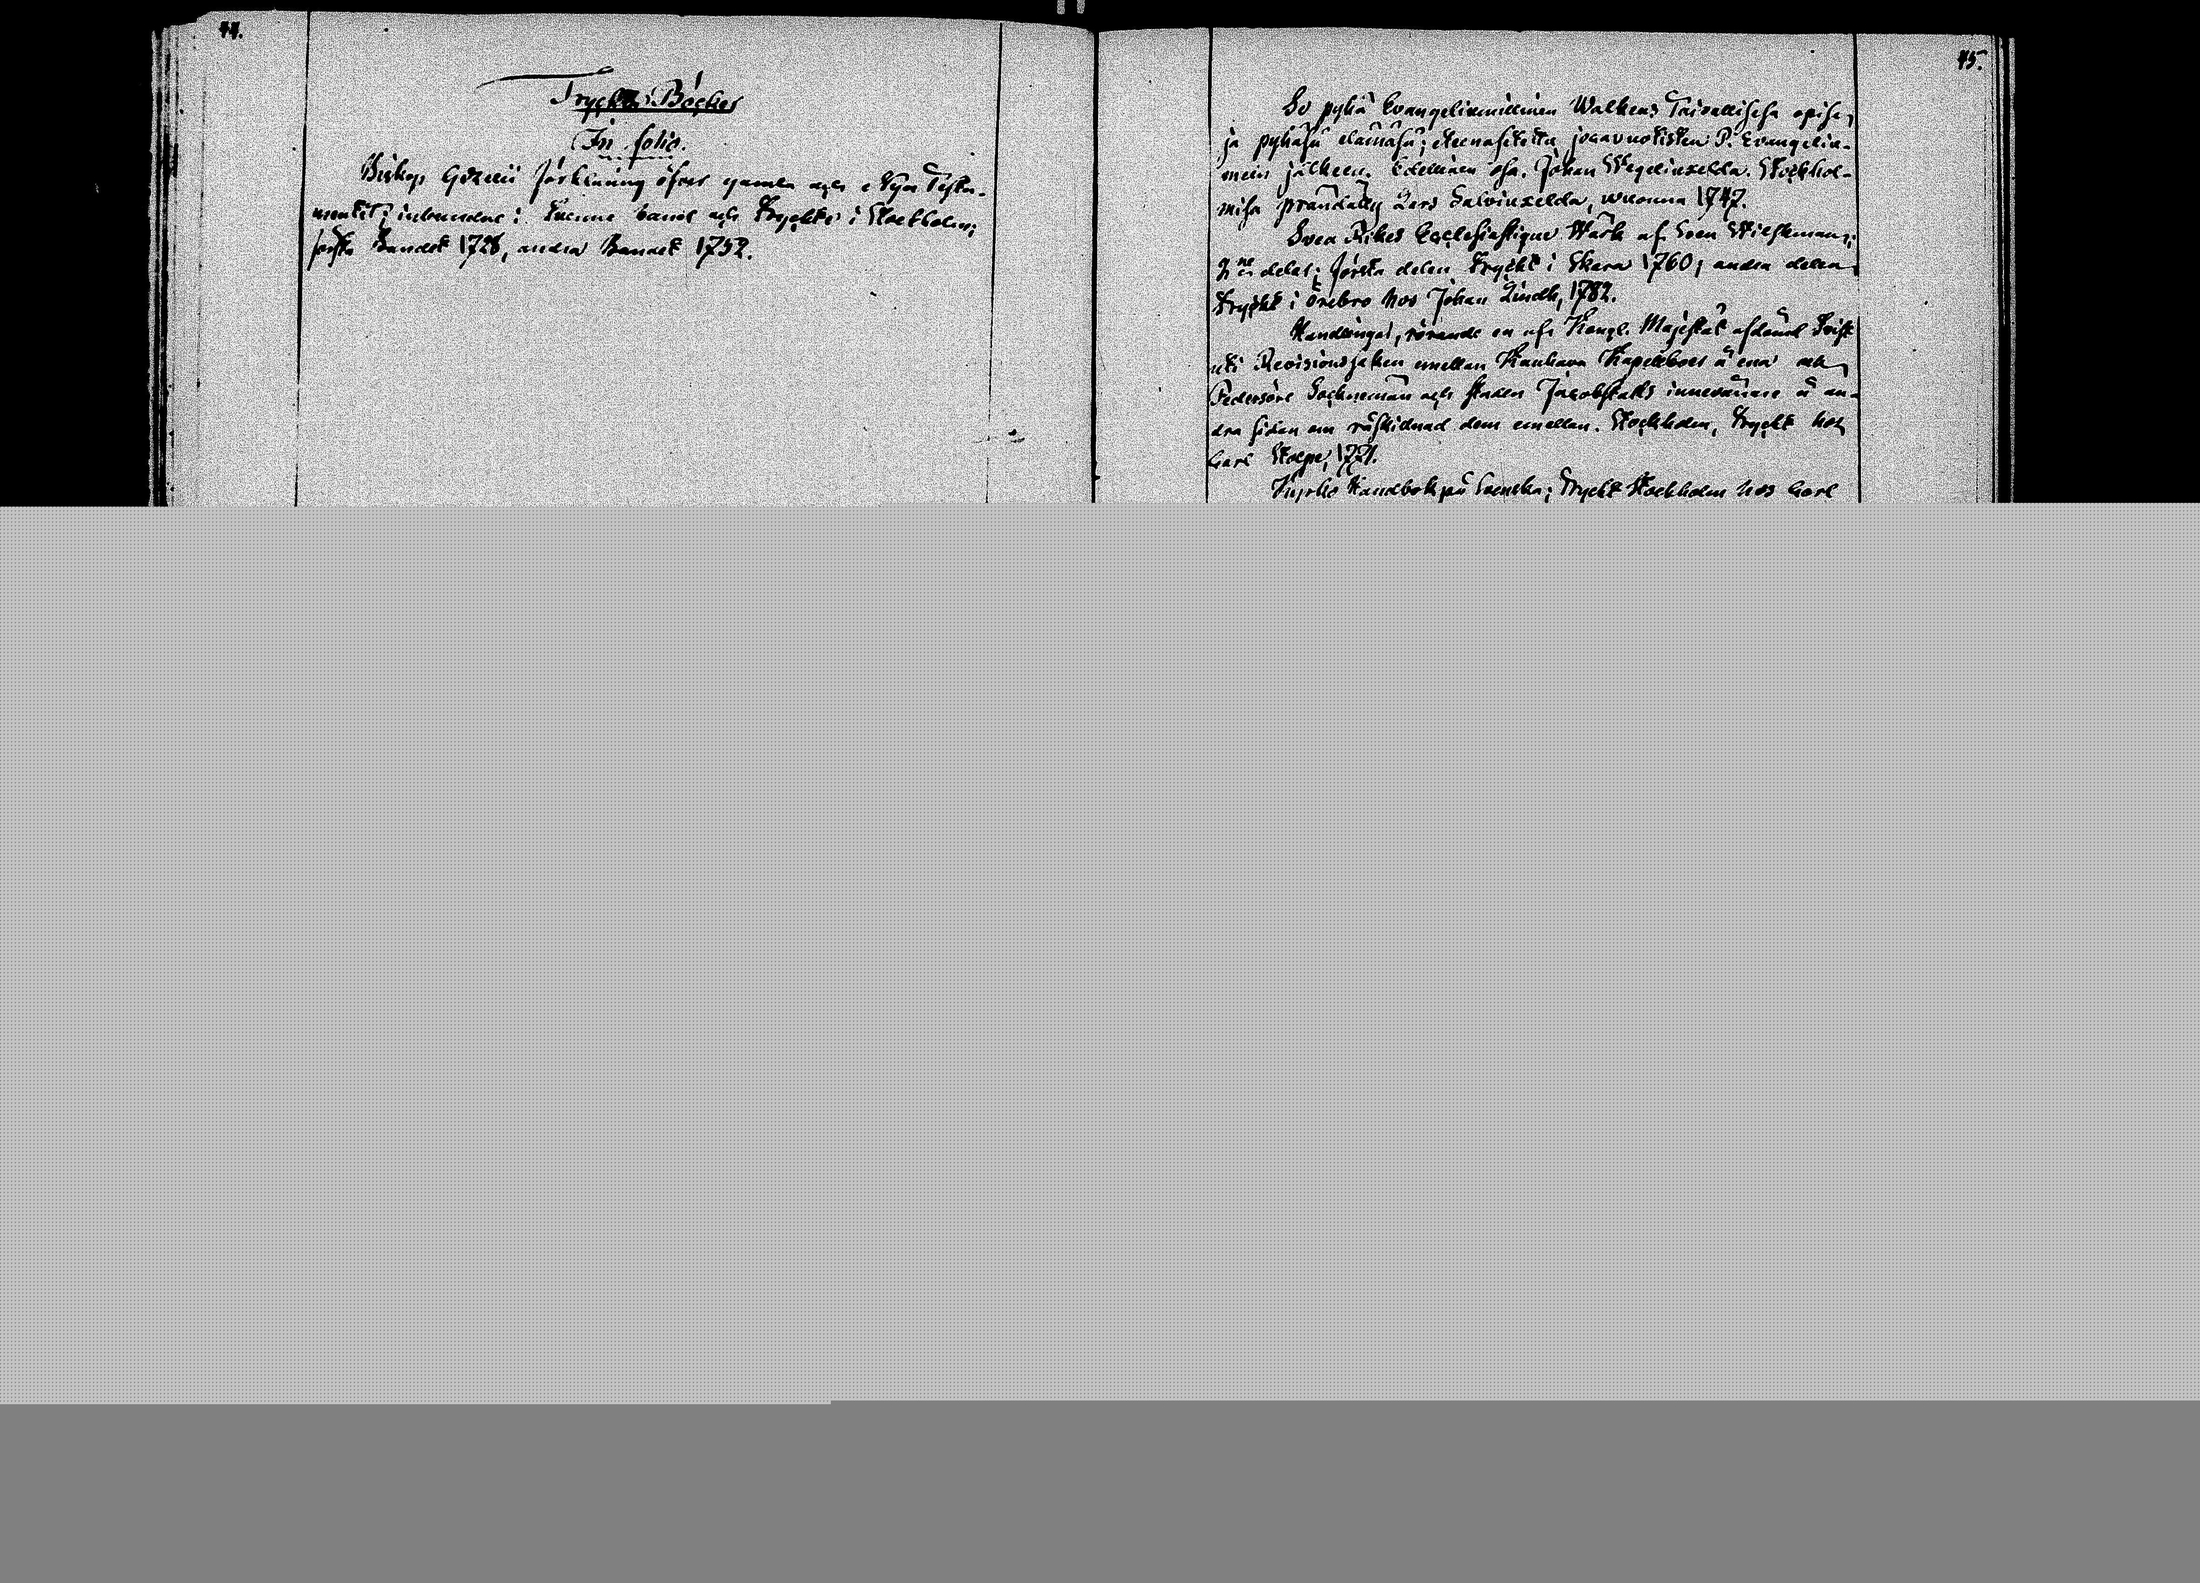 44.
Tryckta Böcker
In folio.
Biskop Gezelii förklaring öfver gamla och Nya Testa-
mentet; inbundne i Tvenne band och Tryckte i Stockholm;
första Bandet 1728, andra Bandet 1752.
45.
Se pyhä Evangeliumillinen Walkeus Taivallisesa opisa,
ja pyhäsä elämäsä; edesnasetettu joca vuotisten P. Evangelia-
mein jälkeen. Edellinen osa. Johan Wegeliuxelda. Stockhol-
misa prändätty Lars Salviuxelda, wuonna 1747.
Svea Rikes Ecclesiastique Wärk af Sven Wilskman;
2ne delar; första delen Tryckt i Skara 1760; andra delen
Tryckt i Örebro hos Johan Lindh, 1782.
Handlingar, rörande en af Kongl. Majestät afdömd Tvist
uti Revisionssaken emellan Kauhava Kapellboer å ena och
Pedersöre Socknemän och staden Jacobstads innevånare å an-
dra sidan om råskillnad dem emellan. Stockholm, Tryckt hos
Carl Stolpe, 1771.
Kyrko Handbok på Svenska; Tryckt Stockholm hos Carl